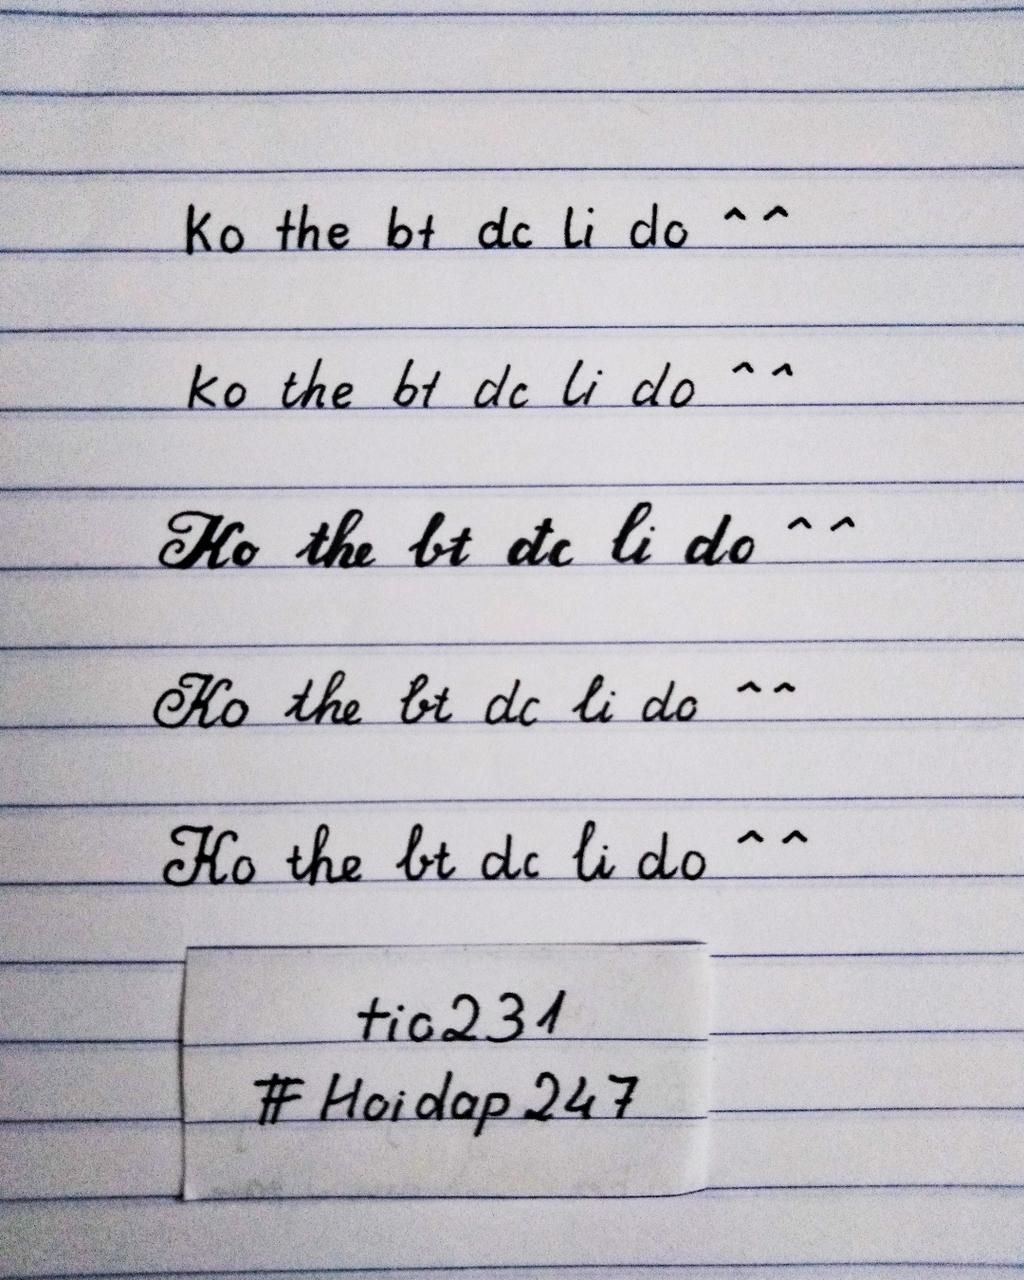 Ko the bt dc li do ^^
ko the bt dc li do ^^
Ko the bt đc li do ^^
Ko the bt dc li do ^^
Ko the bt dc li do ^^
tic231
#Hoidap247